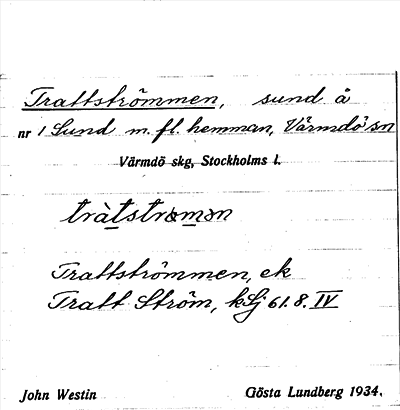 Trattströmmen, sund å
nr 1 Sund m. fl. hemman, Värmdö sn
Värmdö skg, Stockholms l.
tràtstrømən
Trattströmmen, ek
Tratt Ström, kSj 61.8. IV
John Westin Gösta Lundberg 1934.